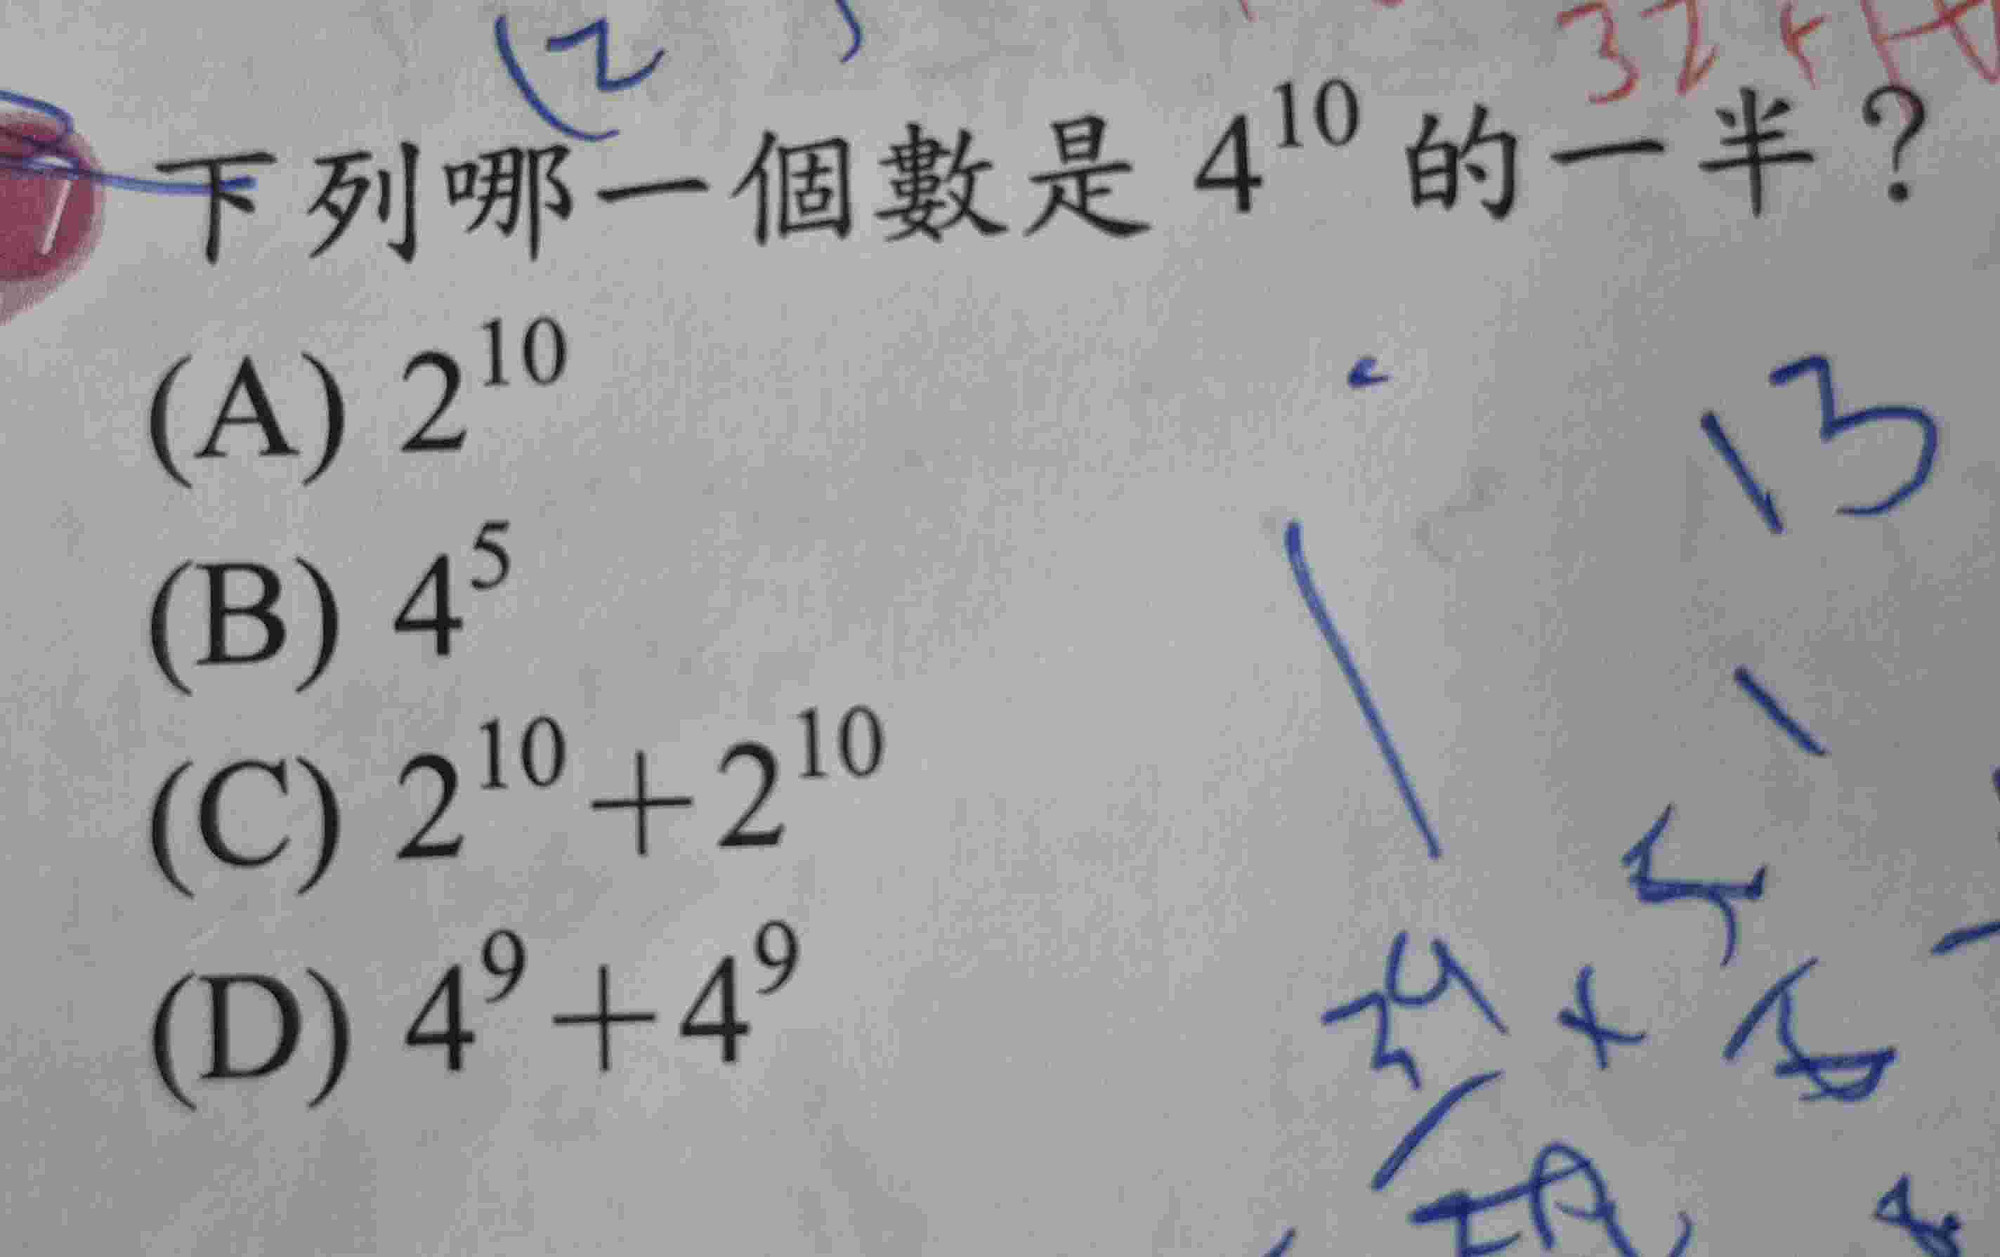 (2 )
32
下列哪一個數是 4¹⁰ 的一半？
(A) 2¹⁰
(B) 4⁵
(C) 2¹⁰＋2¹⁰
(D) 4⁹＋4⁹
13